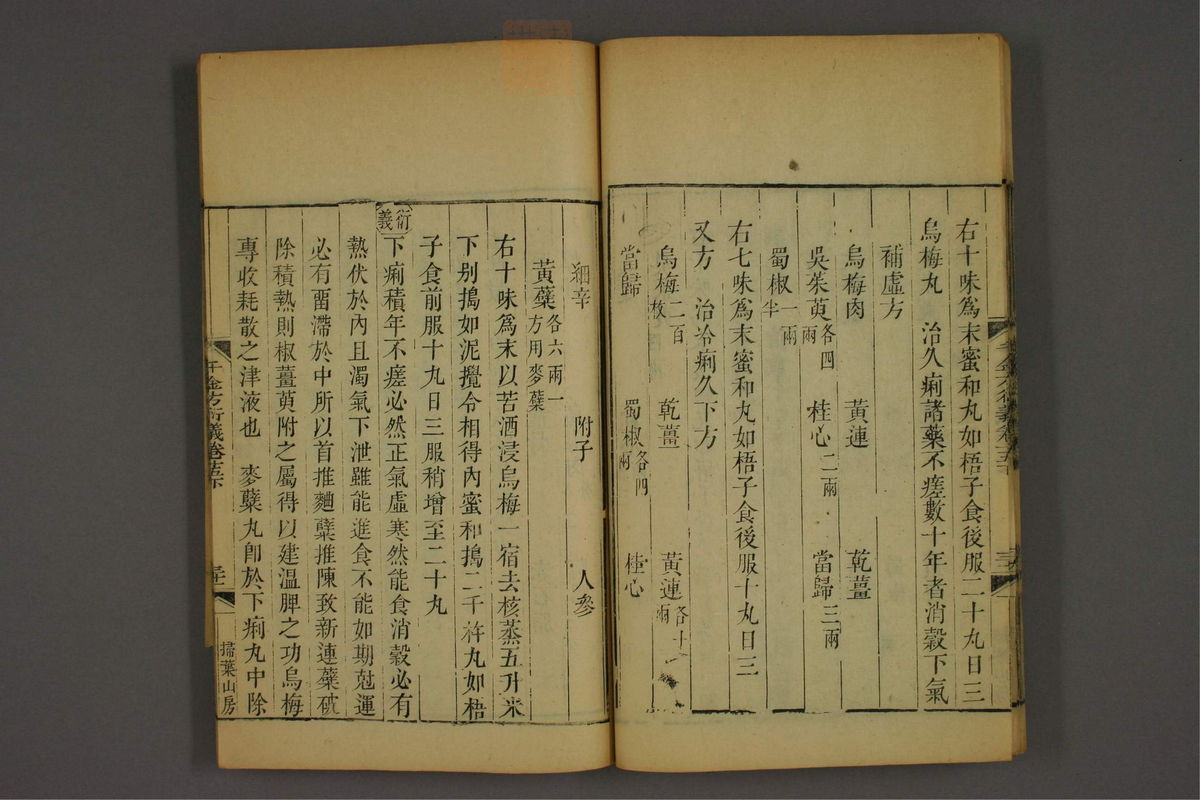 右十味爲末蜜和丸如梧子食後服二十丸日三
烏梅丸　治久痢諸藥不瘥數十年者消穀下氣
補虛方
烏梅肉　黃連　乾薑
吳茱萸各四兩　桂心二兩　當歸三兩
蜀椒一兩半
右七味爲末蜜和丸如梧子食後服十丸日三
又方　治冷痢久下方
烏梅二百枚　乾薑　黃連各十兩
當歸　蜀椒各四兩　桂心
細辛　附子　人參
黃蘗各六兩一方用麥蘗
右十味爲末以苦酒浸烏梅一宿去核蒸五升米
下别搗如泥攪令相得內蜜和搗二千杵丸如梧
子食前服十丸日三服稍增至二十丸
衍義
下痢積年不瘥必然正氣虛寒然能食消穀必有
熱伏於內且濁氣下泄雖能進食不能如期尅運
必有畱滯於中所以首推麯櫱推陳致新連蘗破
除積熱則椒薑萸附之屬得以建溫脾之功烏梅
專收耗散之津液也　麥櫱丸卽於下痢丸中除
千金方衍義卷十五下
掃葉山房